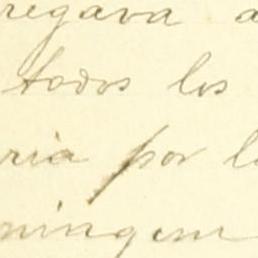 regava a
todos los
ria por l
ningun